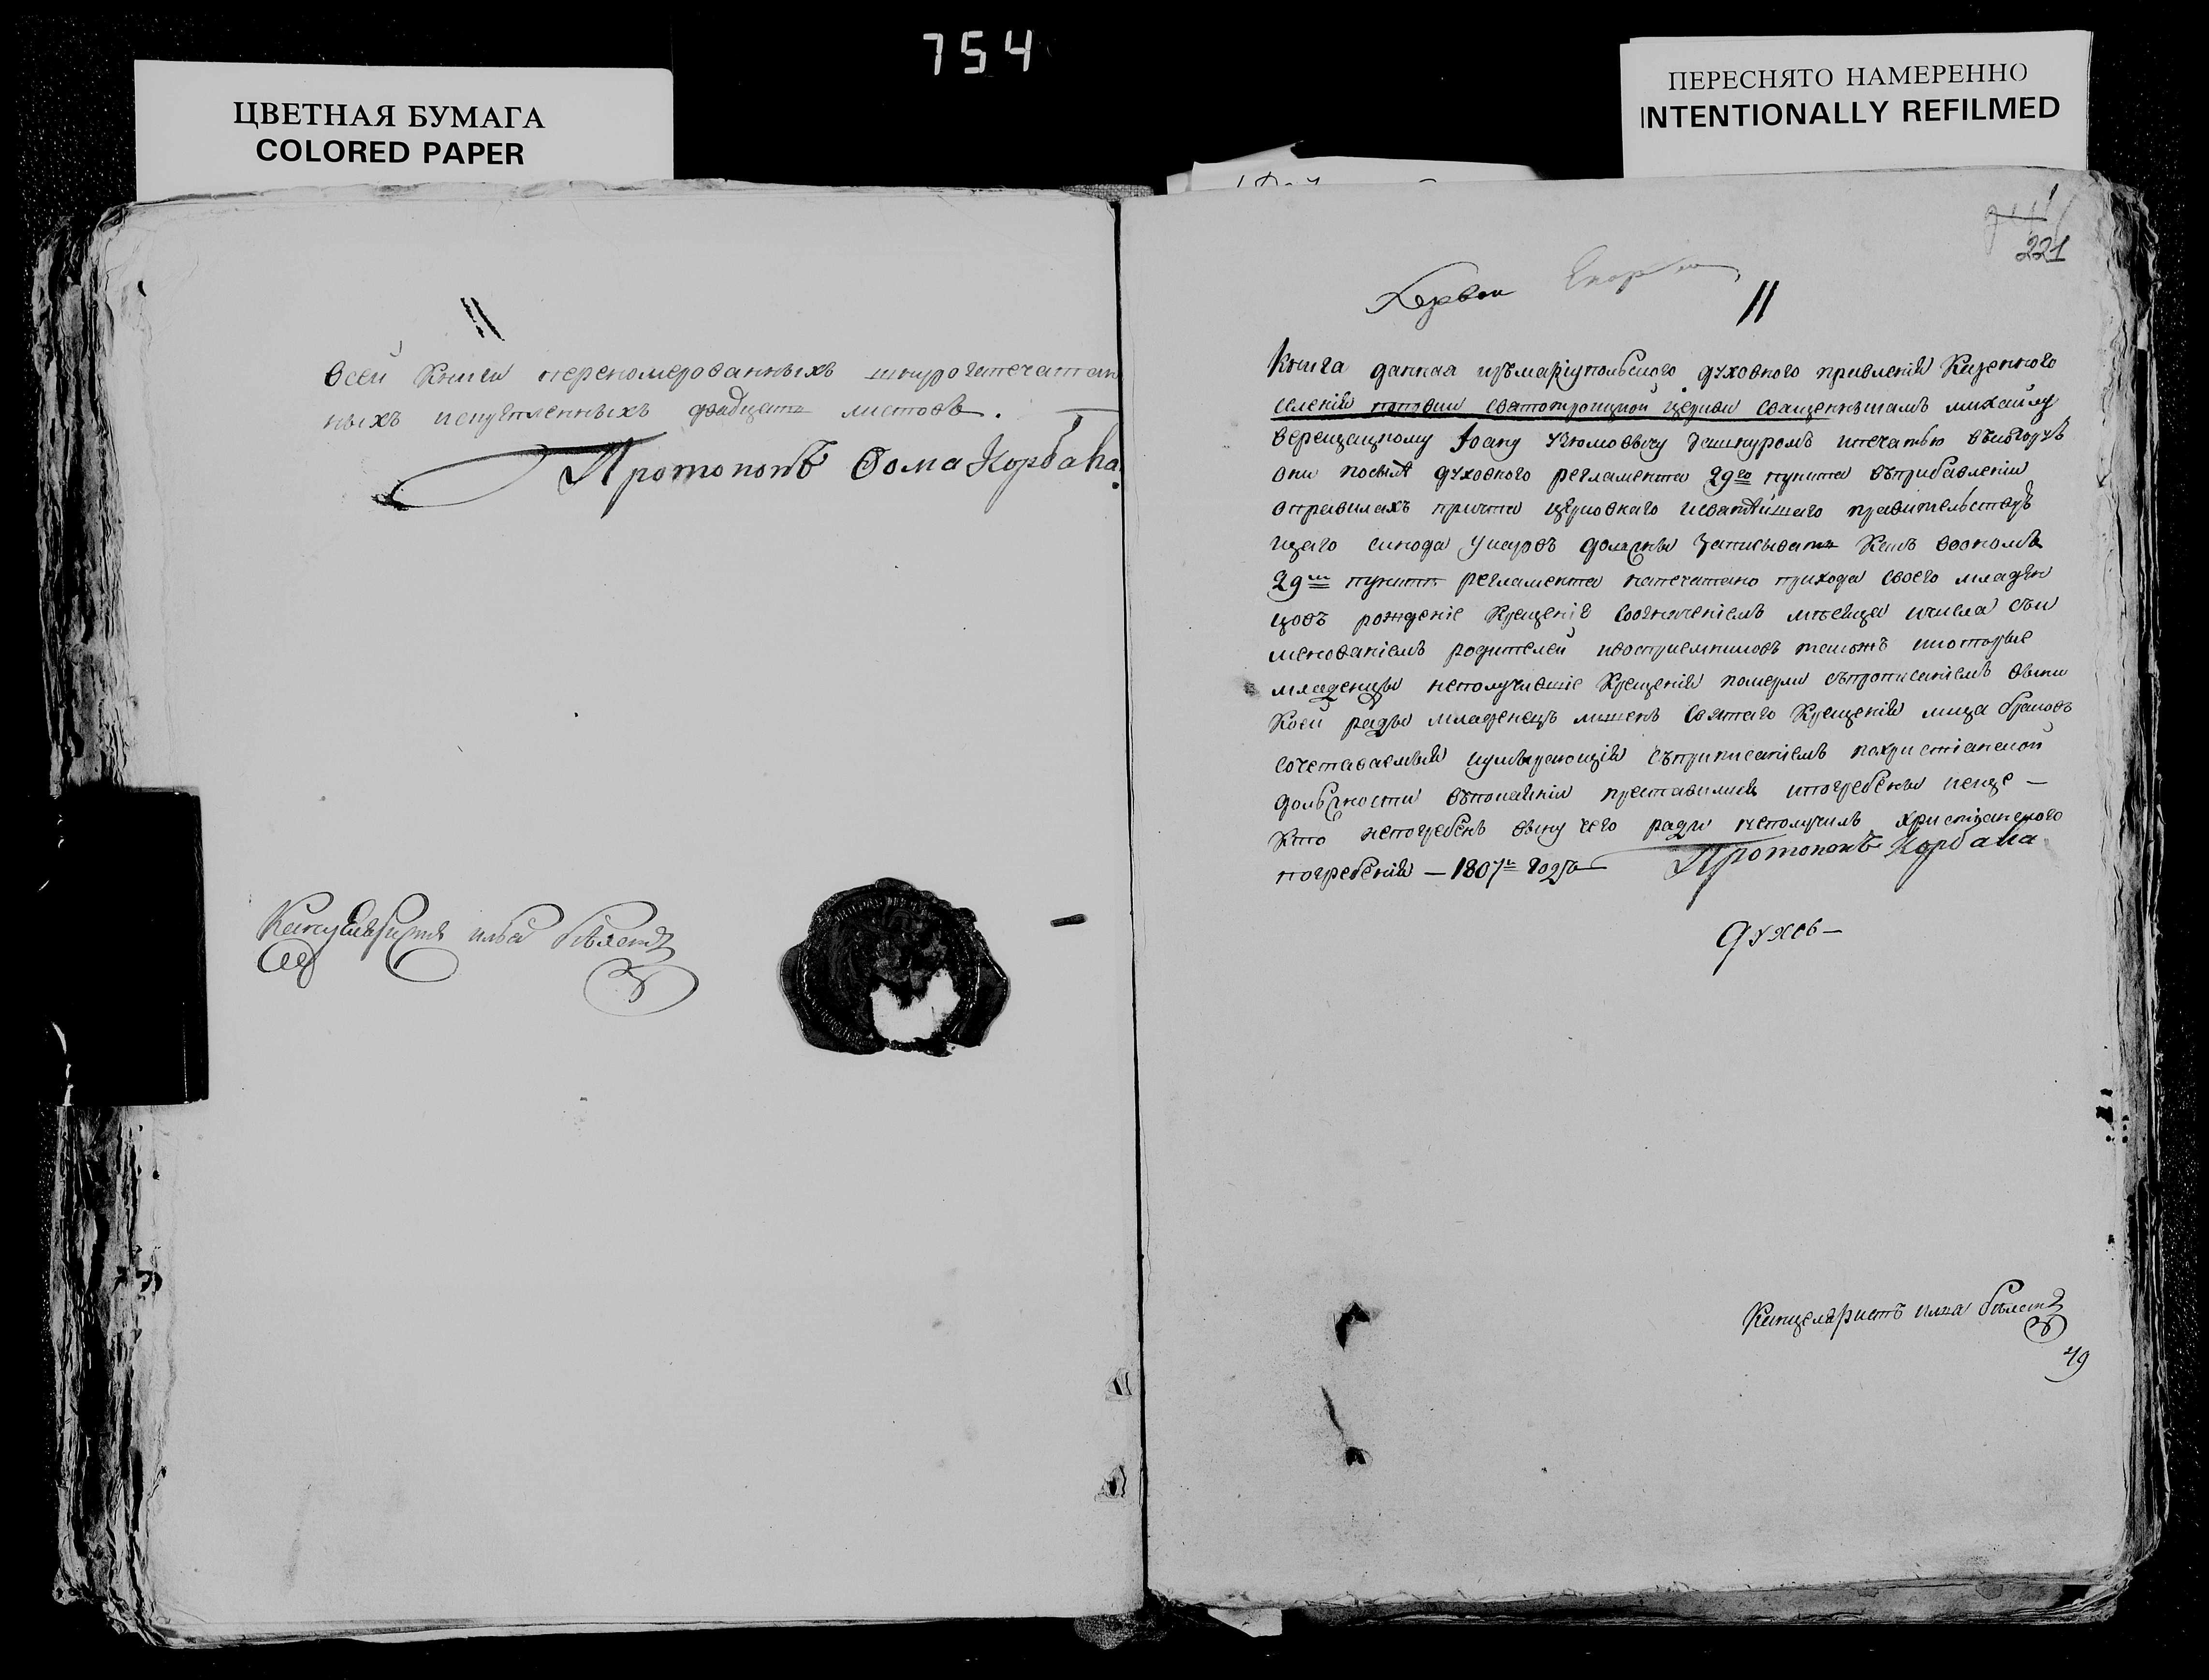 754
ЦВЕТНАЯ БУМАГА
COLORED PAPER
ПЕРЕСНЯТО НАМЕРЕННО
INTENTIONALLY REFILMED
всей книги переномерованныхъ шнуро печатан
ныхъ искрепленныхъ двадцать листовъ.
Протопопъ Фома Корбана
Канцеляристъ илья
221
Книга данная изъмаріупольского духовного правленія Казенного
селенія поповки святотроицкой церкви священникамъ михайлу
верещацкому Іоану зашнуромъ ипечатью въкоторую
они посилѣ духовного регламента 29го пункта въприбавленіи
оправилахъ причта церковнаго исвятѣйшаго правительствую
щаго синода указовъ должны записывать какъ воономъ
29м пунктѣ регламента напечатано прихода своего младен
цовъ рожденіе крещеніе соозначеніемъ мѣсяца ичисла съи
менованіемъ родителей ивоспріемниковъ такожъ икоторые
младенцы неполучивше крещенія померли съприписаніемъ вины
коей ради младенецъ лишенъ святаго крещенія лица бракомъ
сочетаваемыя иумирающія съприписаніемъ похристіанской
должности въпокаяніи преставилися ипогребены иеще —
кто непогребенъ вину чего ради неполучилъ христіанского
погребенія — 1807го года Протопопъ Корбана
духов —
Канцеляристъ илья
49